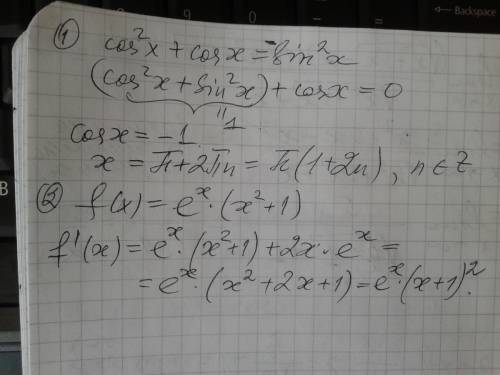 ① cos²x + cosx = -sin²x
(cos²x + sin²x) + cosx = 0
"1
cosx = -1
x = π + 2πn = π(1+2n), n ∈ Z
② f(x) = eˣ · (x²+1)
f'(x) = eˣ · (x²+1) + 2x · eˣ =
= eˣ · (x² + 2x + 1) = eˣ · (x+1)².